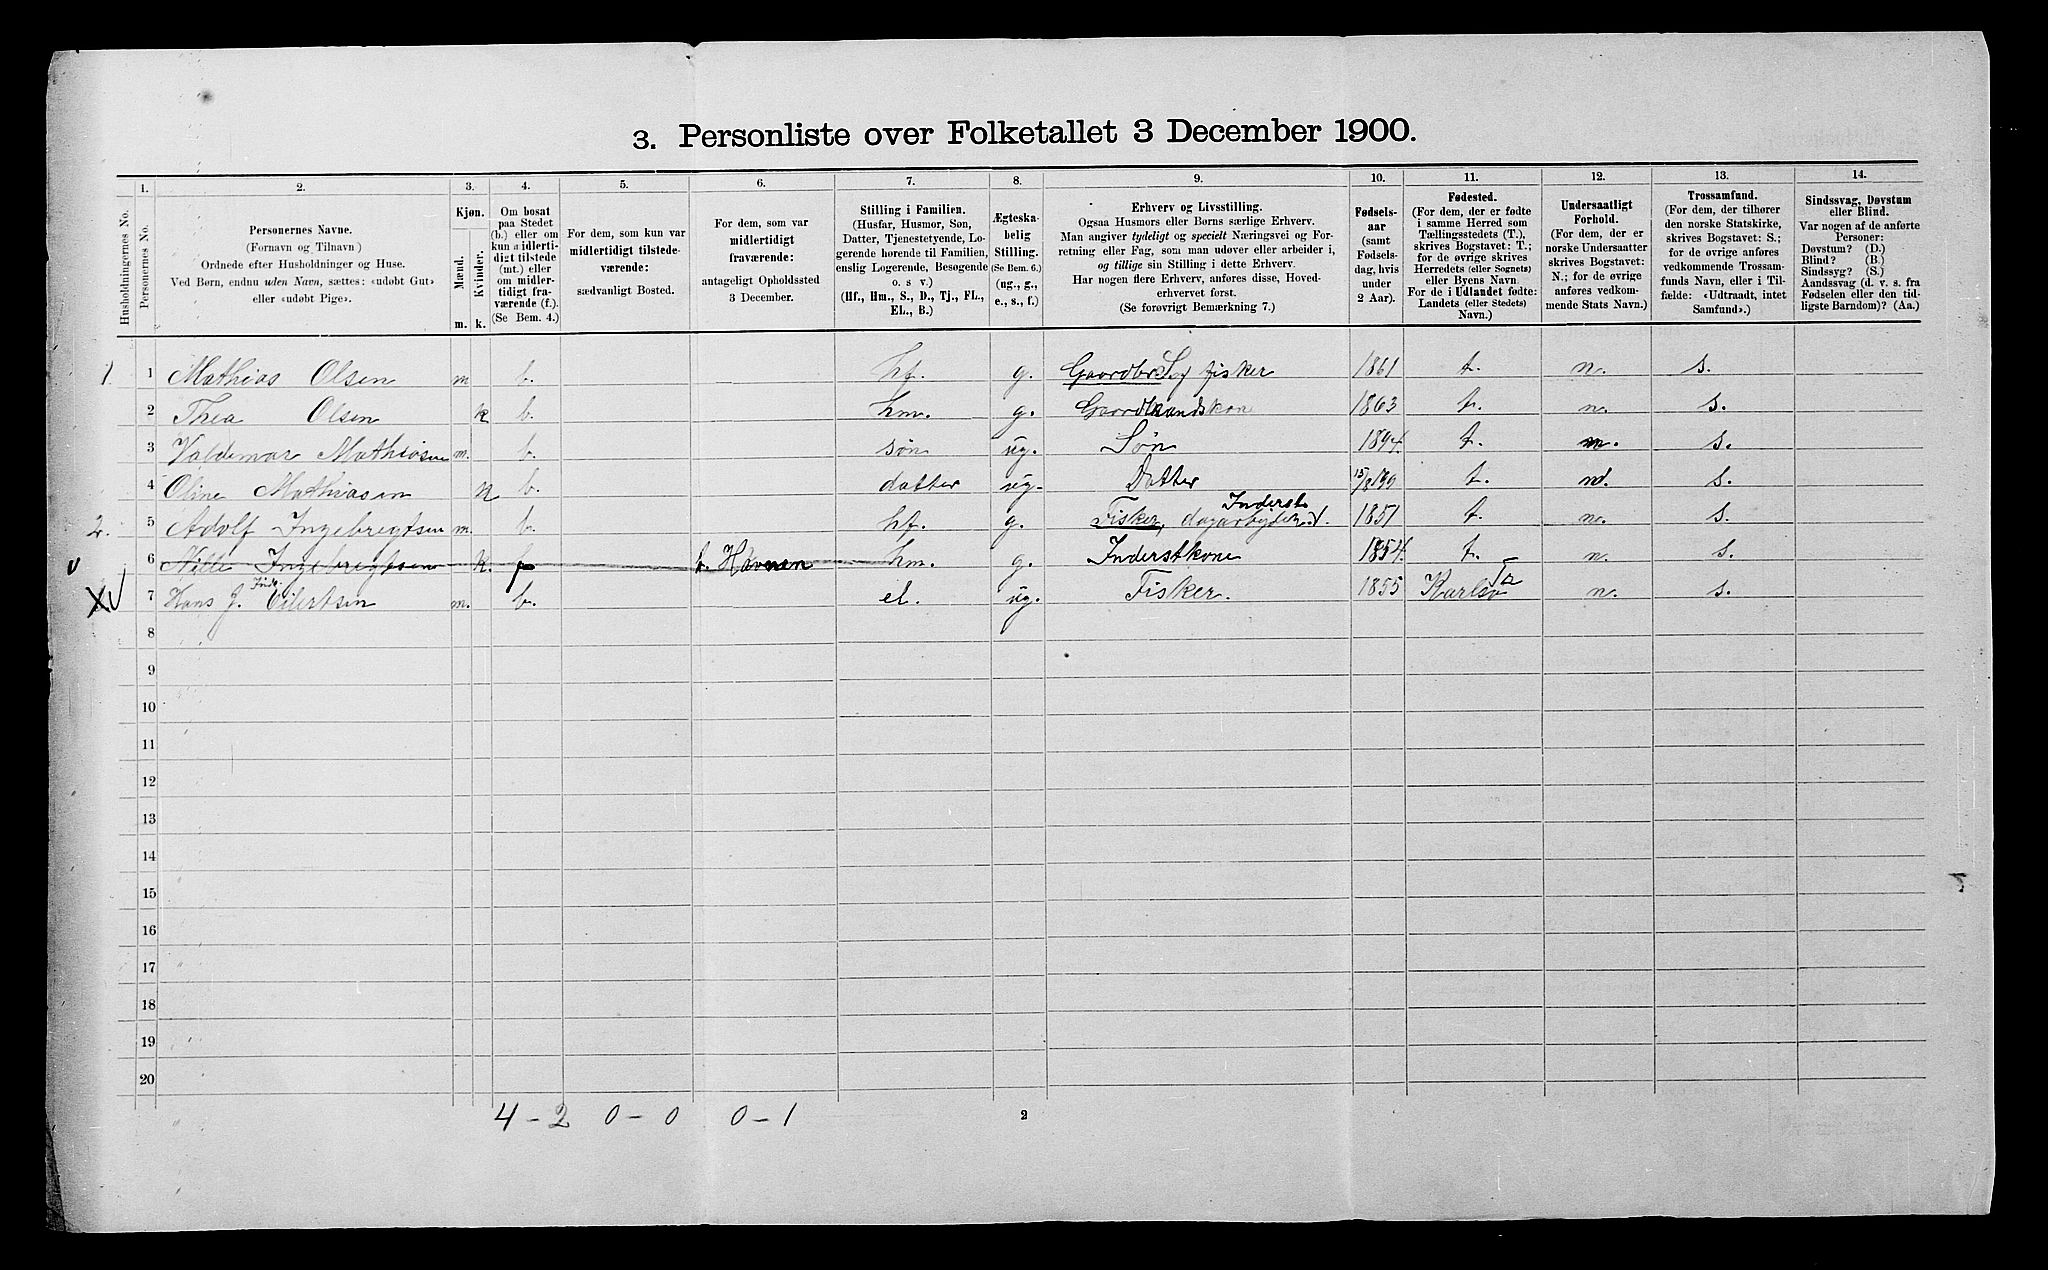 3. Personliste over Folketallet 3 December 1900.
Husholdningernes No.
1.
Personernes No.
2.
Personernes Navne.
(Fornavn og Tilnavn)
Ordnede efter Husholdninger og Huse.
Ved Børn, endnu uden Navn, sættes: «udøbt Gut»
eller «udøbt Pige».
3.
Kjøn.
Mænd.
Kvinder.
m. k.
4.
Om bosat
paa Stedet
(b.) eller om
kun midlerti-
digt tilstede
(mt.) eller
om midler-
tidigt fra-
værende (f.).
(Se Bem. 4.)
5.
For dem, som kun var
midlertidigt tilstede-
værende:
sædvanligt Bosted.
6.
For dem, som var
midlertidigt
fraværende:
antageligt Opholdssted
3 December.
7.
Stilling i Familien.
(Husfar, Husmor, Søn,
Datter, Tjenestetyende, Lo-
gerende hørende til Familien,
enslig Logerende, Besøgende
o. s v.)
(Hf., Hm., S., D., Tj., FL.,
EL., B.)
8.
Ægteska-
belig
Stilling.
(Se Bem. 6.)
(ug., g.,
e., s., f.)
9.
Erhverv og Livsstilling.
Ogsaa Husmors eller Børns særlige Erhverv.
Man angiver tydeligt og specielt Næringsvei og For-
retning eller Fag, som man udøver eller arbeider i,
og tillige sin Stilling i dette Erhverv.
Har nogen flere Erhverv, anføres disse, Hoved-
erhvervet først.
(Se forøvrigt Bemærkning 7.)
10.
Fødsels-
aar
(samt
Fødsels-
dag, hvis
under
2 Aar).
11.
Fødested.
(For dem, der er fødte
i samme Herred som
Tællingsstedets (T.),
skrives Bogstavet: T.;
for de øvrige skrives
Herredets (eller Sognets)
eller Byens Navn.
For de i Udlandet fødte:
Landets (eller Stedets)
Navn.)
12.
Undersaatligt
Forhold.
(For dem, der er
norske Undersaatter
skrives Bogstavet:
N.; for de øvrige
anføres vedkom-
mende Stats Navn.)
13.
Trossamfund.
(For dem, der tilhører
den norske Statskirke,
skrives Bogstavet: S.;
for de øvrige anføres
vedkommende Trossam-
funds Navn, eller i Til-
fælde: «Udtraadt, intet
Samfund».)
14.
Sindssvag, Døvstum
eller Blind.
Var nogen af de anførte
Personer:
Døvstum? (D.)
Blind? (B.)
Sindssyg? (S.)
Aandssvag (d. v. s. fra
Fødselen eller den tid-
ligste Barndom)? (Aa.)
1 1 Mathias Olsen m. b. hf. g. Gaardbr. S og fisker 1861 t. n. s.
2 Thea Olsen k b. hm. g. Gaardmandskone 1863 t. n. s.
3 Valdemar Mathiasen m. b. søn ug. Søn 1894. t. n. s.
4 Oline Mathiasen k b. datter ug. Datter 15/8 99 t. n. s.
Inderst
2. 5 Adolf Ingebregtsen m. b. hf. g. Fisker, dagarbejder 1851 t. n. s.
v 6 Nille Ingebregtsen k. f t. Havnen hm. g. Inderstkone 1854. t. n. s.
XV 7 Hans J. Eilertsen m. b. el. ug. Fisker. 1855 Karlsø n. s.
8
9
10
11
12
13
14
15
16
17
18
19
20
4 - 2 0 - 0 0 - 1 2